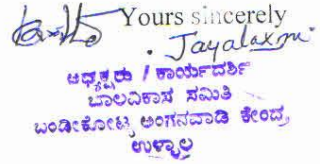 Yours sincerely
Jayalaxmi
ಅಧ್ಯಕ್ಷರು / ಕಾರ್ಯದರ್ಶಿ
ಬಾಲವಿಕಾಸ ಸಮಿತಿ
ಬಂಡೀಕೋಟ್ಯ ಅಂಗನವಾಡಿ ಕೇಂದ್ರ,
ಉಳ್ಳಾಲ